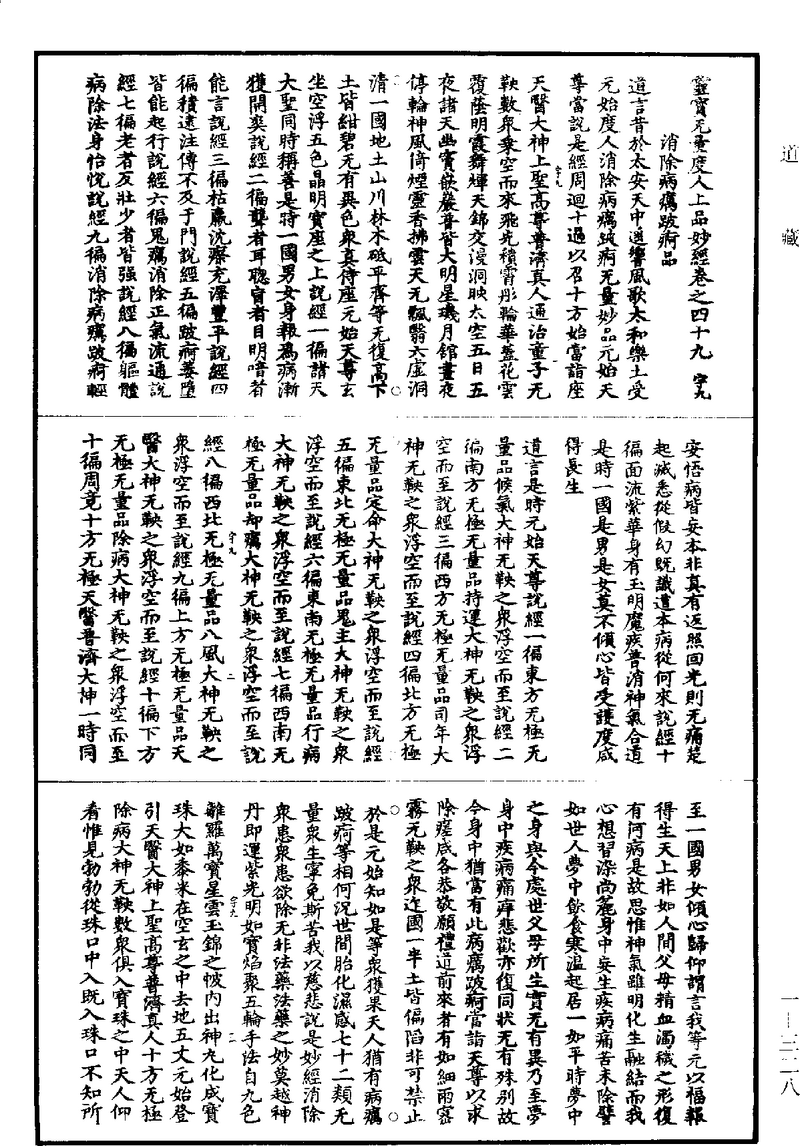 道藏
靈寶无量度人上品妙經卷之四十九　字九
消除病癘跛痾品
道言昔於太安天中遇響風歌太和樂土受
元始度人消除病癘跛痾无量妙品元始天
尊當說是經周迴十過以召十方始當詣座
天醫大神上聖高尊普濟真人通治童子无
鞅數衆乗空而來飛光積霄彤輪華蓋花雲
覆蔭明霞舞煇天錦交漫洞映太空五日五
夜諸天幽寶嵌巖普皆大明星璣月館晝夜
停輪神風倚煙靈香拂雲天无飄翳六虛洞
清一國地土山川林木砥平齊等无復高下
土皆紺碧无有異色衆真侍座元始天尊玄
坐空浮五色晶明寶座之上說經一徧諸天
大聖同時稱善是時一國男女身報癘病漸
獲開爽說經二徧聾者耳聰盲者目明喑者
能言說經三徧枯羸沈瘵充澤豐平說經四
徧積逺注傳不及于門說經五徧跛痾蹇墮
皆能起行說經六徧鬼癘消除正氣流通說
經七徧老者反壯少者皆强說經八徧軀體
病除法身怡恱說經九徧消除病癘跛痾輕
安悟病皆妄本非真有返照回光則无痛楚
起滅悉從假幻既識遣本病從何來說經十
徧面流紫華身有玉明魔疾普消神氣合道
是時一國是男是女莫不傾心皆受護度咸
得長生
道言是時元始天尊說經一徧東方无極无
量品候氣大神无鞅之衆浮空而至說經二
徧南方无極无量品持運大神无鞅之衆浮
空而至說經三徧西方无極无量品司年大
神无鞅之衆浮空而至說經四徧北方无極
无量品定命大神无鞅之衆浮空而至說經
五徧東北无極无量品鬼主大神无鞅之衆
浮空而至說經六徧東南无極无量品行病
大神无鞅之衆浮空而至說經七徧西南无
極无量品却癘大神无鞅之衆浮空而至說
經八徧西北无極无量品八風大神无鞅之
衆浮空而至說經九徧上方无極无量品天
醫大神无鞅之衆浮空而至說經十徧下方
无極无量品除病大神无鞅之衆浮空而至
十徧周竟十方无極天醫普濟大神一時同
至一國男女傾心歸仰謂言我等元以福報
得生天上非如人間父母精血濁穢之形復
有何病是故思惟神氣雖明化生融結而我
心想習染尚麤身中妄生疾病痛苦未除譬
如世人夢中飲食寒溫起居一如平時夢中
之身與今處世父母所生實无有異乃至夢
身中疾病痛痒悲歡亦復同狀无有殊别故
今身中猶當有此病癘跛痾當詣天尊以求
除瘥咸各恭敬願禮道前來者有如細雨密
霧无鞅之衆迮國一半土皆偏陷非可禁止
於是元始知如是等衆獲果天人猶有病癘
跛痾等相何況世間胎化濕感七十二類无
量衆生寧免斯苦我以慈悲說是妙經消除
衆患衆患欲除无非法藥法藥之妙莫越神
丹即運紫光明如寶焰聚五輪手法自九色
離羅萬寶星雲玉錦之帔内出神丸化成寶
珠大如黍米在空玄之中去地五丈元始登
引天醫大神上聖高尊普濟真人十方无極
除病大神无鞅數衆俱入寶珠之中天人仰
看惟見勃勃從珠口中入既入珠口不知所
一—三二八